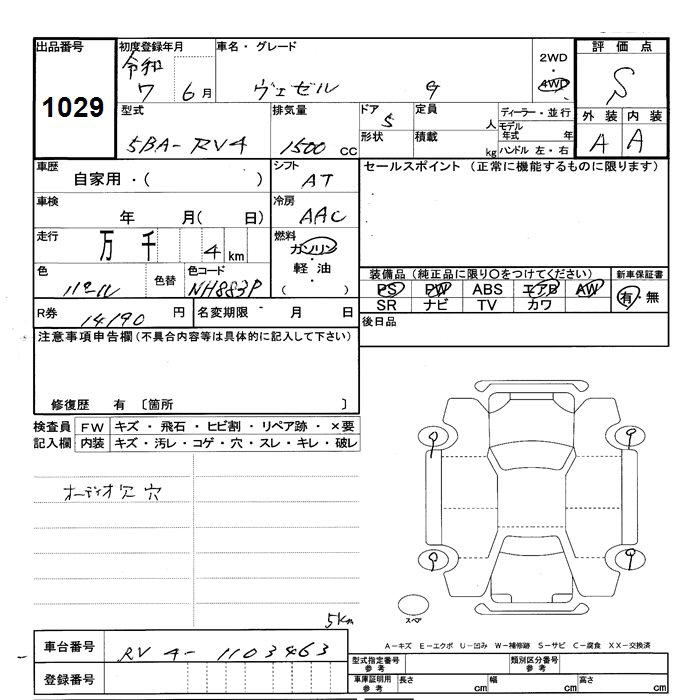 出品番号 初度登録年月 車名・グレード 2WD 評価点
1029 令和 7 6月 ヴェゼル ・ 4WD S
型式 排気量 ドア 5 定員 人 ディーラー・並行 外装 内装
5BA-RV4 1500 CC 形状 積載 kg モデル年式 年 A A
ハンドル 左・右
車歴 シフト セールスポイント (正常に機能するものに限ります)
自家用・( ) AT
車検 冷房
年 月( 日) AAC
走行 燃料
万 千 4 km ガソリン
・
軽油
( )
色 色替 色コード 装備品 (純正品に限り○をつけてください) 新車保証書
パール NH883P PS PW ABS エアB AW 有・無
SR ナビ TV カワ
R券 14190 円 名変期限 月 日 後日品
注意事項申告欄(不具合内容等は具体的に記入して下さい)
修復歴 有 〔箇所 〕
検査員 FW キズ・飛石・ヒビ割・リペア跡・×要
記入欄 内装 キズ・汚レ・コゲ・穴・スレ・キレ・破レ
オーディオ穴
スペア
5Km
A-キズ E-エクボ U-凹み W-補修跡 S-サビ C-腐食 XX-交換済
車台番号 RV4-1103463
登録番号
型式指定番号 参考 類別区分番号 参考
車庫証明用 参考 長さ cm 幅 cm 高さ cm